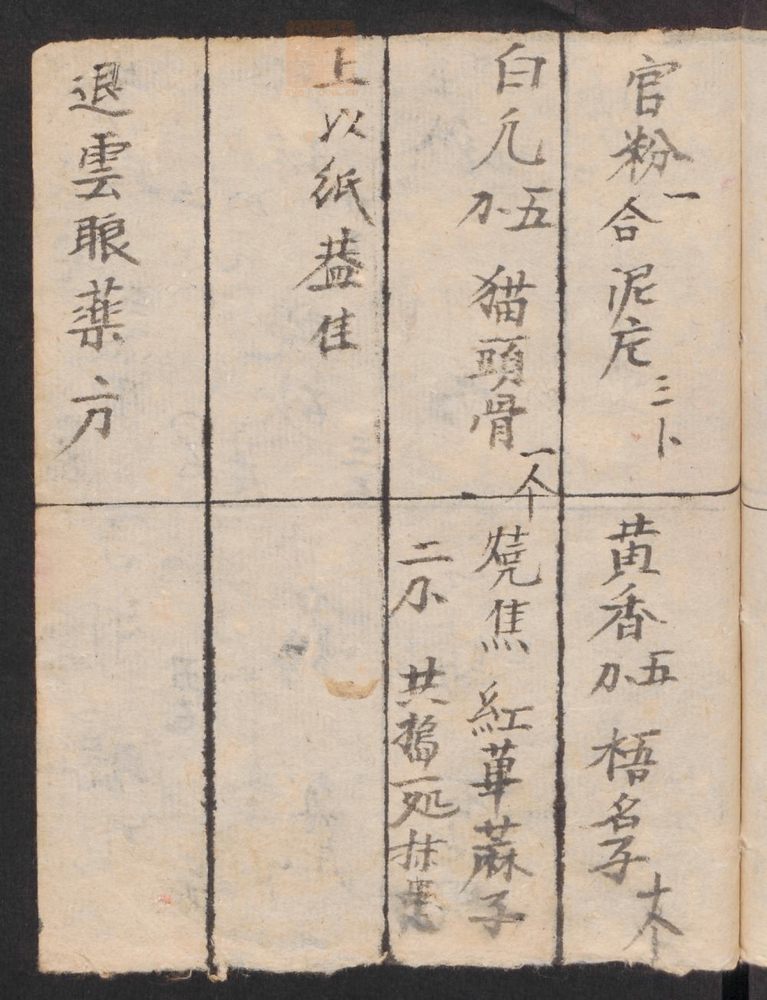 官粉一合泥疕三卜 黄香五分 梧名子十个
白凡五分 猫頭骨一个 燒焦 紅萆蔴子
二分 共搗一処抹患
上以紙蓋佳
退雲眼藥方